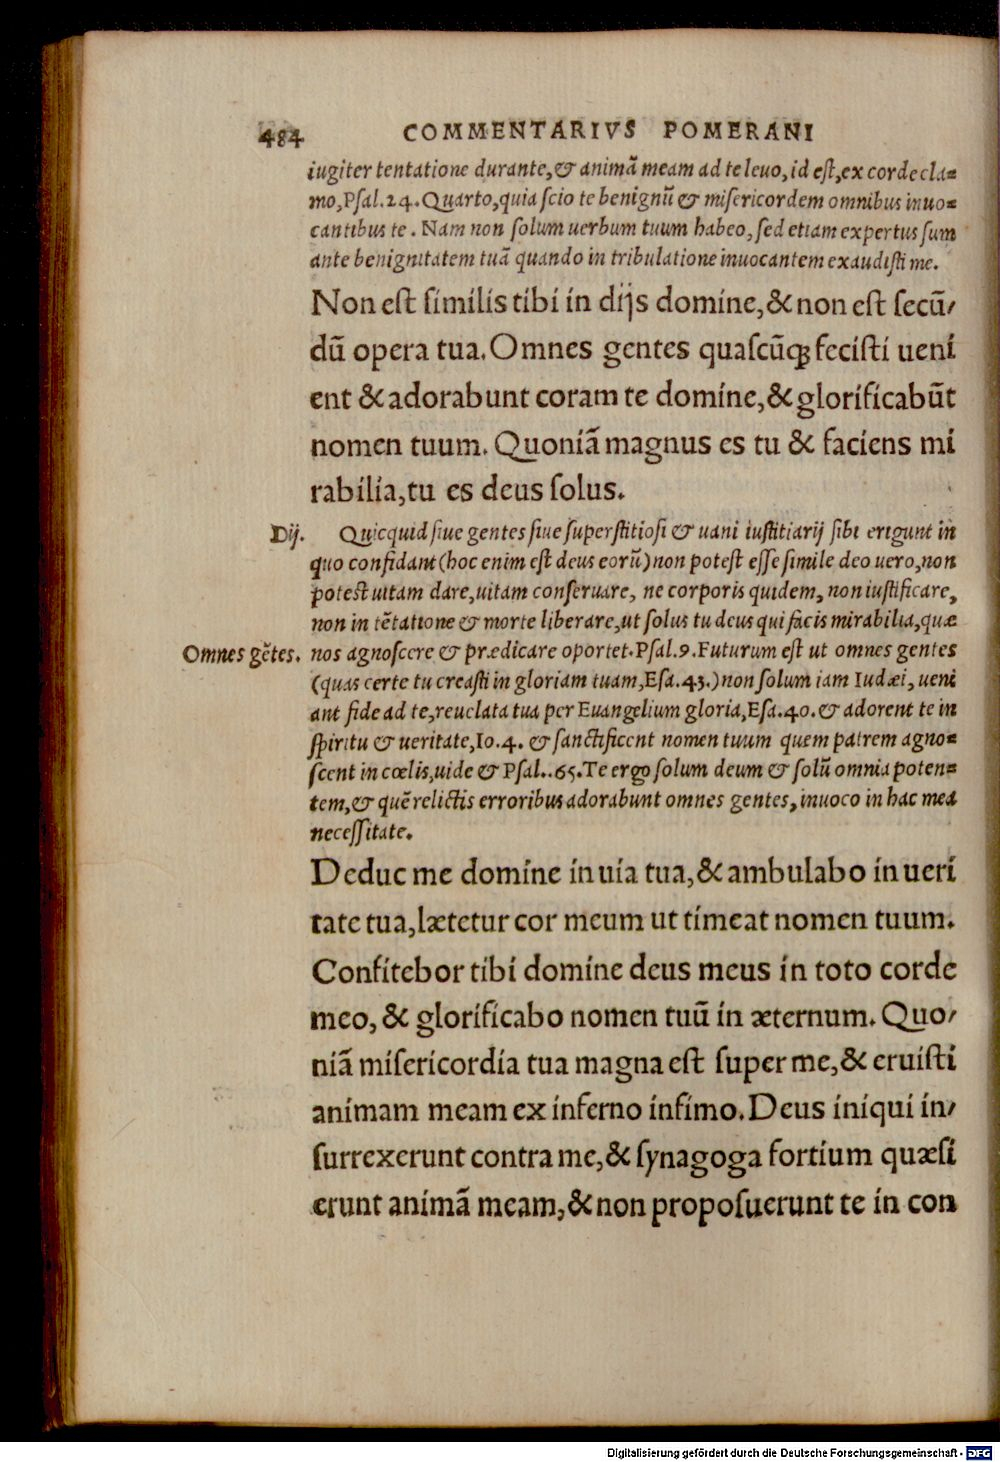 484 COMMENTARIVS POMERANI
iugiter tentatione durante, & animã meam ad te leuo, id est, ex corde cla=
mo, Psal.24. Quarto, quia scio te benignũ & misericordem omnibus inuo=
cantibus te. Nam non solum uerbum tuum habeo, sed etiam expertus sum
ante benignitatem tuã quando in tribulatione inuocantem exaudisti me.
Non est similis tibi in dijs domine, & non est secũ/
dũ opera tua. Omnes gentes quascũꝗ fecisti ueni
ent & adorabunt coram te domine, & glorificabũt
nomen tuum. Quoniã magnus es tu & faciens mi
rabilia, tu es deus solus.
Dij. Quicquid siue gentes siue superstitiosi & uani iustitiarij sibi erigunt in
quo confidant (hoc enim est deus eorũ) non potest esse simile deo uero, non
potest uitam dare, uitam conseruare, ne corporis quidem, non iustificare,
non in tẽtatione & morte liberare, ut solus tu deus qui facis mirabilia, quæ
Omnes gẽtes. nos agnoscere & prædicare oportet. Psal.9. Futurum est ut omnes gentes
(quas certe tu creasti in gloriam tuam, Esa.43.) non solum iam Iudæi, ueni
ant fide ad te, reuelata tua per Euangelium gloria, Esa.40. & adorent te in
spiritu & ueritate, Io.4. & sanctificent nomen tuum quem patrem agno=
scent in cœlis, uide & Psal..65. Te ergo solum deum & solũ omnia poten=
tem, & quẽ relictis erroribus adorabunt omnes gentes, inuoco in hac mea
necessitate.
Deduc me domine in uia tua, & ambulabo in ueri
tate tua, lætetur cor meum ut timeat nomen tuum.
Confitebor tibi domine deus meus in toto corde
meo, & glorificabo nomen tuũ in æternum. Quo/
niã misericordia tua magna est super me, & eruisti
animam meam ex inferno infimo. Deus iniqui in/
surrexerunt contra me, & synagoga fortium quæsi
erunt animã meam, & non proposuerunt te in con
Digitalisierung gefördert durch die Deutsche Forschungsgemeinschaft - DFG